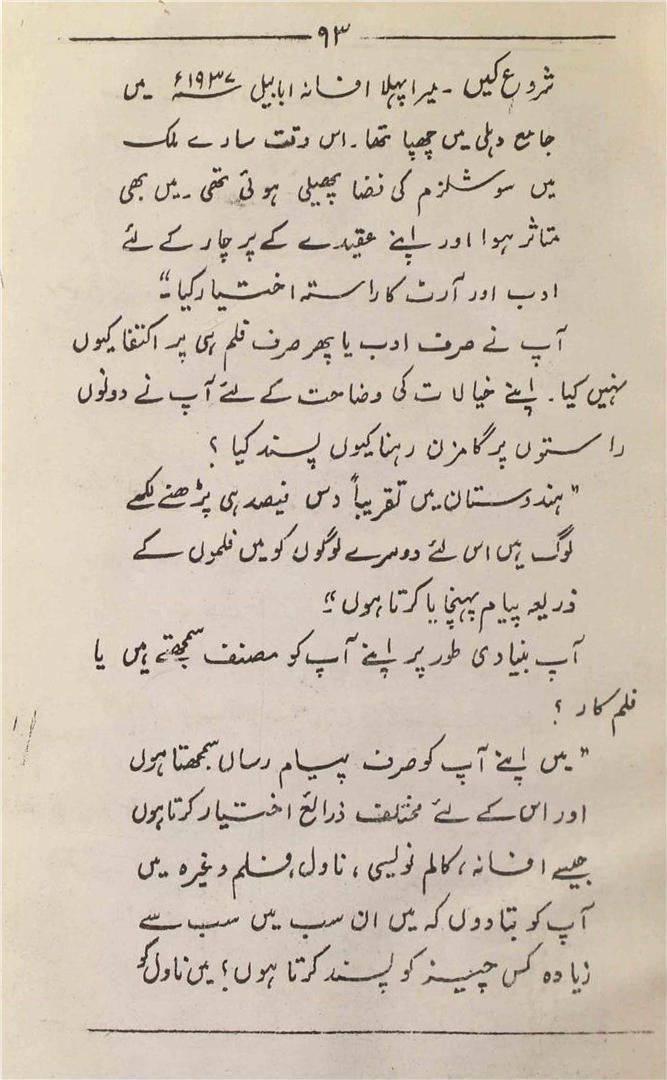 ۹۳
شروع کیں ۔ میرا پہلا افسانہ ابابیل ۱۹۳۷ء میں
جامع دہلی میں چھپا تھا۔ اس وقت سارے ملک
میں سوشلزم کی فضا پھیلی ہوئی تھی ۔ میں بھی
متاثر ہوا اور اپنے عقیدے کے پرچار کے لئے
ادب اور آرٹ کا راستہ اختیار کیا ۔"
آپ نے صرف ادب یا پھر صرف فلم ہی پر اکتفا کیوں
نہیں کیا۔ اپنے خیالات کی وضاحت کے لئے آپ نے دونوں
راستوں پر گامزن رہنا کیوں پسند کیا ؟
"ہندوستان میں تقریباً دس فیصد ہی پڑھنے لکھے
لوگ ہیں اس لئے دوسرے لوگوں کو میں فلموں کے
ذریعہ پیام پہنچایا کرتا ہوں ۔"
آپ بنیادی طور پر اپنے آپ کو مصنف سمجھتے ہیں یا
فلم کار ؟
"میں اپنے آپ کو صرف پیام رساں سمجھتا ہوں
اور اس کے لئے مختلف ذرائع اختیار کرتا ہوں
جیسے افسانہ، کالم نویسی، ناول، فلم وغیرہ میں
آپ کو بتا دوں کہ میں ان سب میں سب سے
زیادہ کس چیز کو پسند کرتا ہوں؟ میں ناول کو